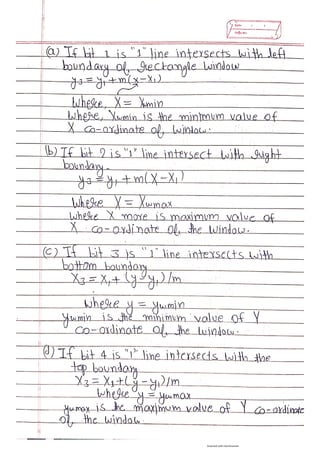 (a) If bit 1 is "1" line intersects with left
boundary of Rectangle window
y3 = y1 + m(x-x1)
Where, X = Xmin
Where, Xwmin is the minimum value of
X co-ordinate of window.
(b) If bit 2 is "1" line intersect with right
boundary.
y3 = y1 + m(X-X1)
Where X = Xwmax
where X more is maximum value of
X co-ordinate of the window.
(c) If bit 3 is "1" line intersects with
bottom boundary
X3 = X1 + (y-y1)/m
where y = ywmin
ywmin is the minimum value of Y
co-ordinate of the window.
(d) If bit 4 is "1" line intersects with the
top boundary
X3 = X1+(y-y1)/m
where y = ywmax
ywmax is the maximum value of Y co-ordinate
of the window.